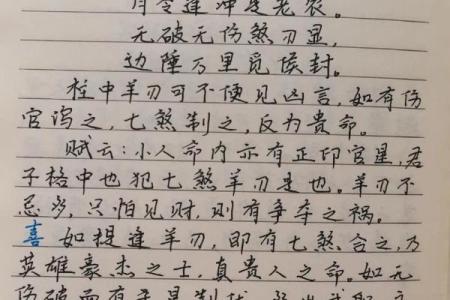 月令逢冲是老农。
无破无伤煞刃显,
边陲万里觅侯封。
柱中羊刃可不便见凶言,如有伤
官泻之,七煞制之,反为贵命。
赋云:小人命内亦有正印官星,君
子格中也犯七煞羊刃是也。羊刃不
忌岁,只怕见财,则有争夺之祸。
喜 如提逢羊刃,即有七煞合之,乃
英雄豪杰之士,真贵人之命。如无
伤破而有